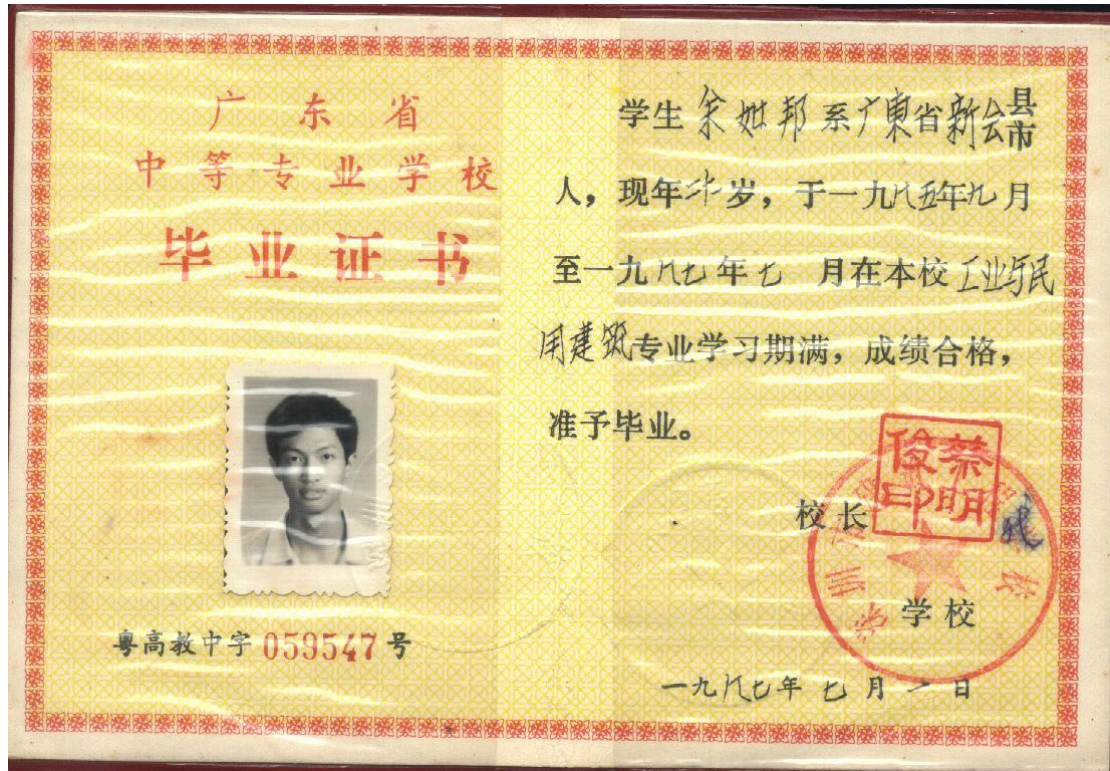 广东省
中等专业学校
毕业证书
粤高教中字 059547 号
学生余 邦系广東省新会县市
人，现年 岁，于一九八五年九月
至一九八七年七 月在本校工业与民
用建筑专业学习期满，成绩合格，
准予毕业。
校长 蔡明俊印
学校
一九八七年七月一日